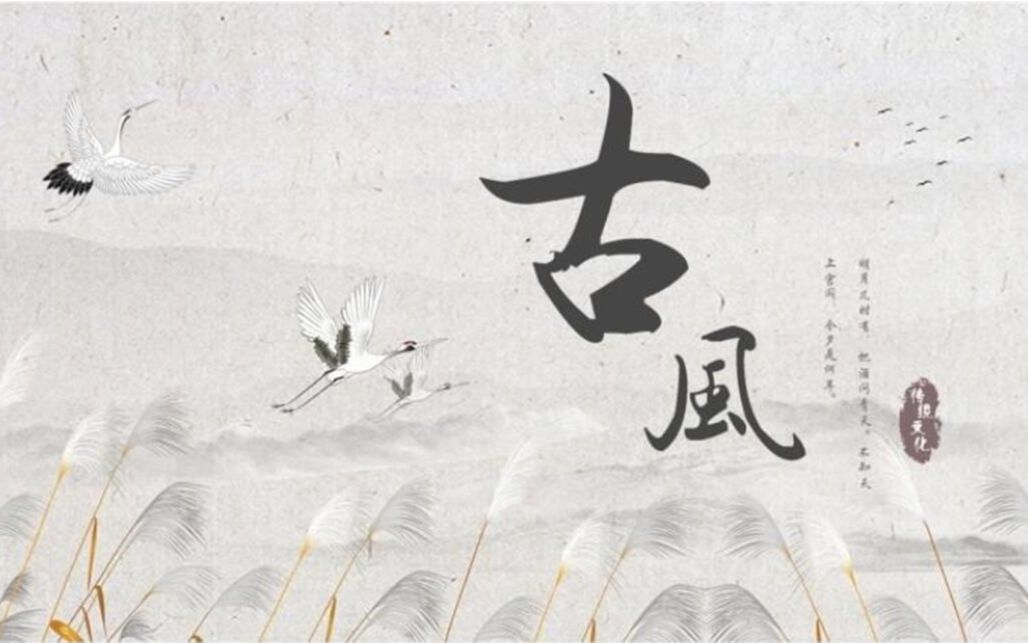 古風
明月几时有，把酒问青天。不知天
上宫阙，今夕是何年。
传统文化